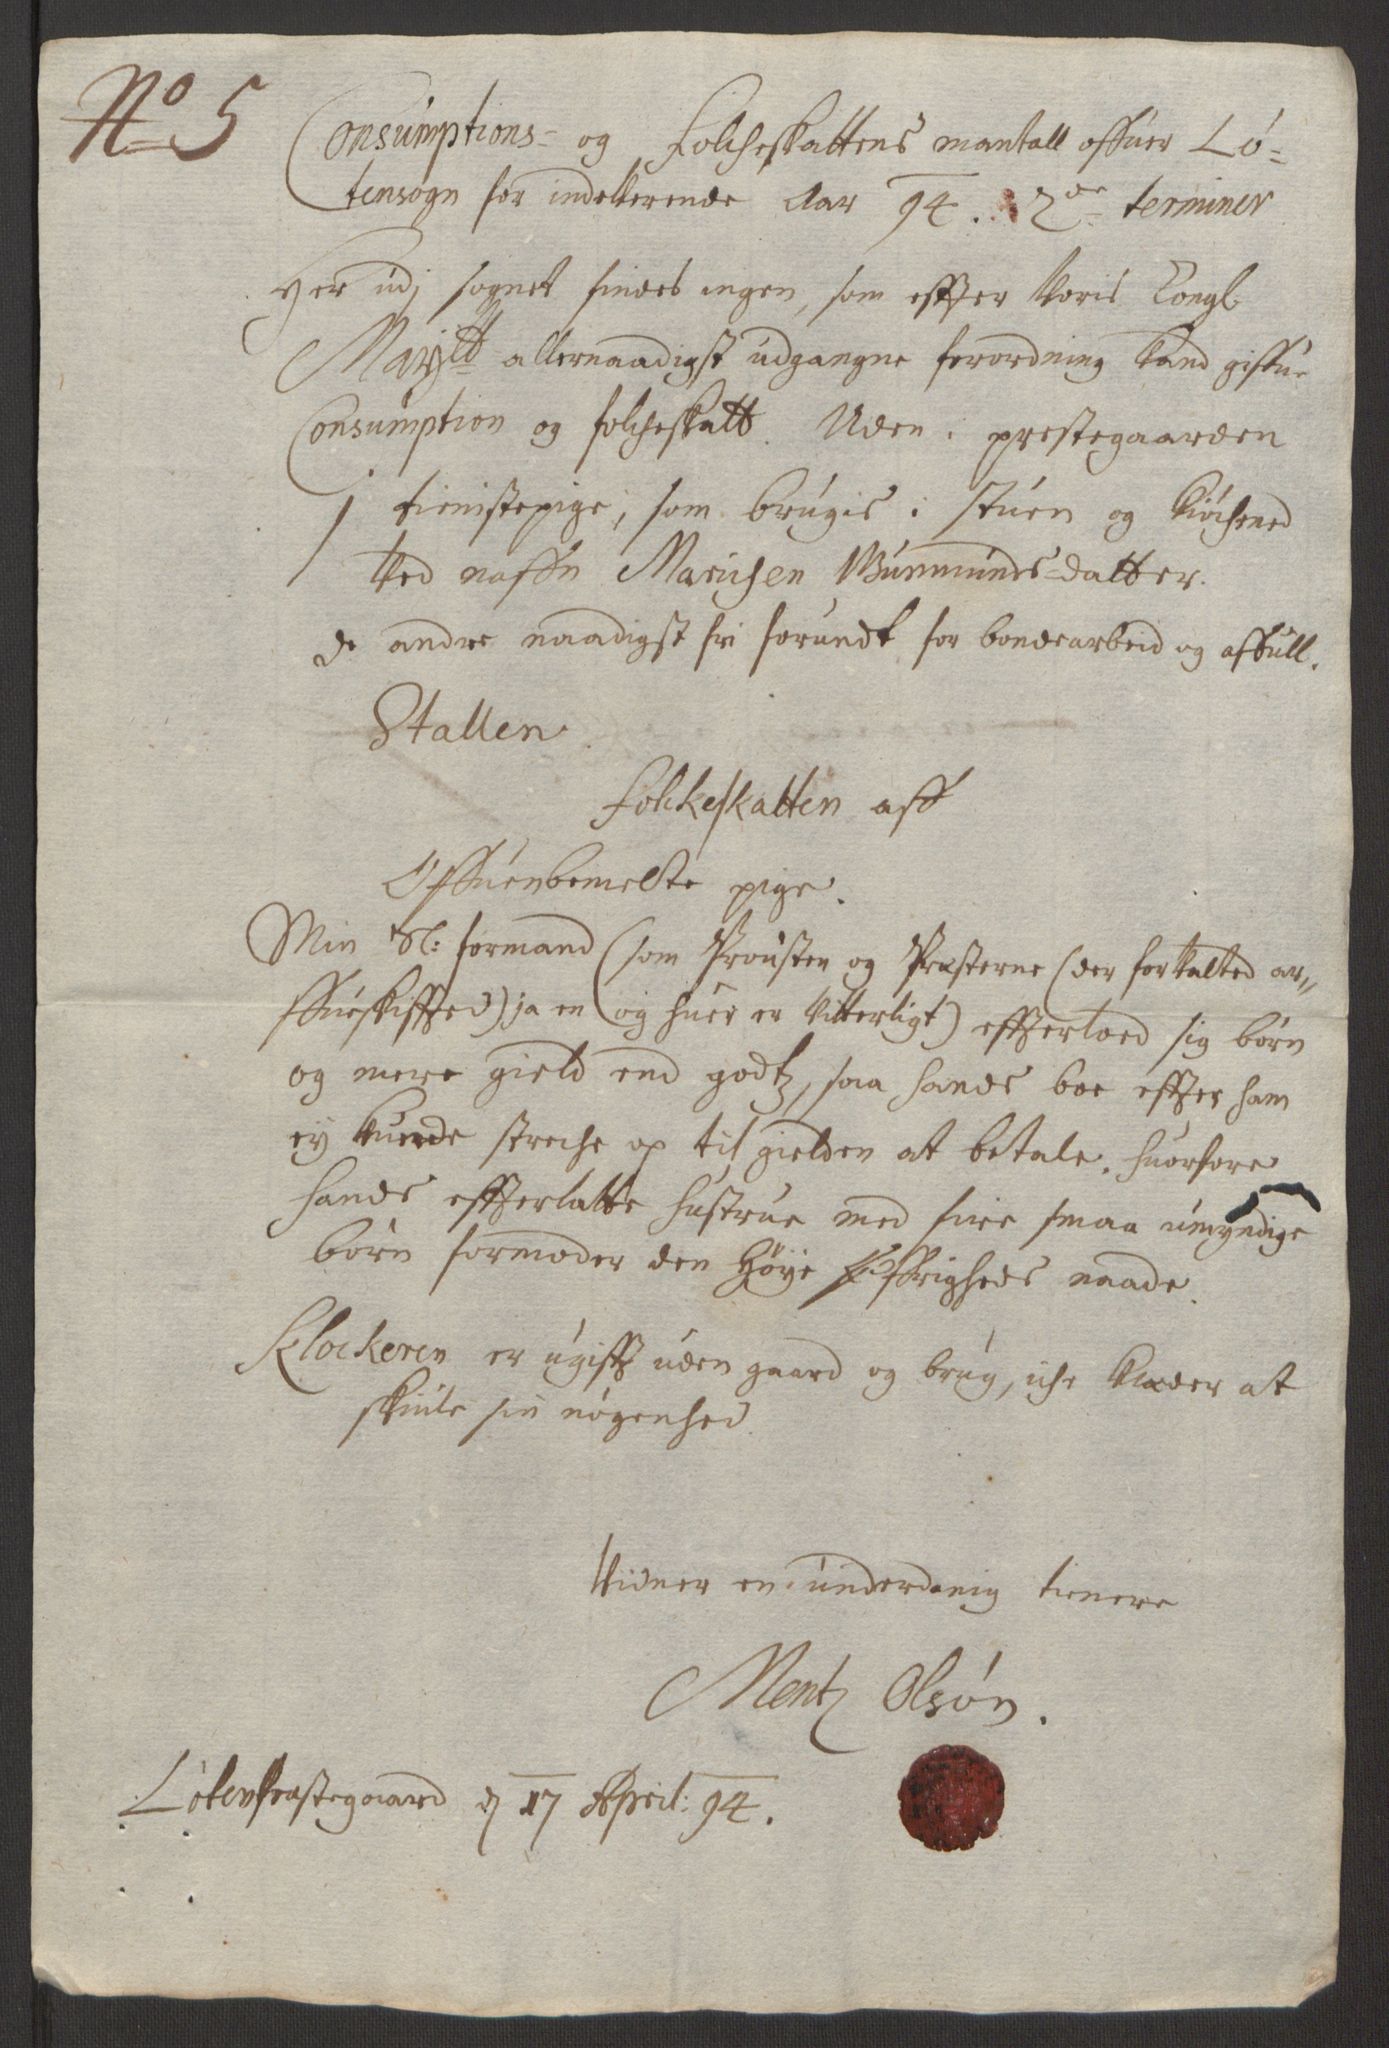 No 5
Consumptions- og Folcheskattens mantall offuer Lø-
tensogn for indeverende Aar 94. 2de terminer
Her udj sognet findes ingen, som effter Voris Kongl
Maÿtt allernaadigst udgangne forordning kand giffue
Consumption og folcheskatt. Uden i prestegaarden
1 tienistepige, som brugis i stuen og kiöchened
Ved naffn Marichen Gummunds-datter.
de andre naadigst fri forundt for bondearbeid og affull.
Stallen.
Folckeskatten aff
Offuenbemelte pige.
Min Sl: formand (som Prousten og Præsterne (der forvalted ar„
ffueskiffted) ja en og huer er vitterligt) effterloed sig børn
og mere gield end godtz, saa hands boe effter ham
eÿ kunde streche op til gielden at betale. huorfore
hands effterlatte hustrue med fire smaa umyndige
børn formoder den Høÿe Øffrigheds naade.
Klockeren er ugifft uden gaard og brug, iche klæder at
skiule sin nøgenhed
Vidner en underdanig tienere
Mentz Olsøn.
Løten Præstegaard d 17 April: 94.